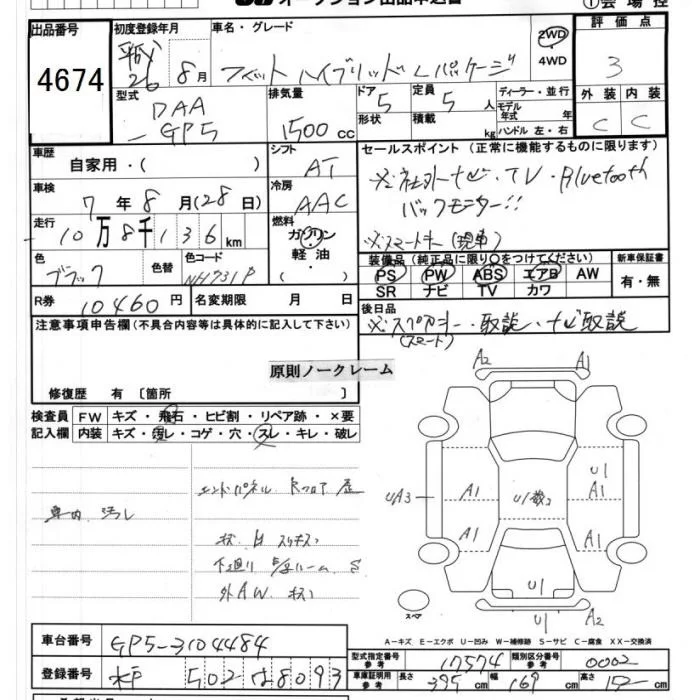 オークション出品申込書 ①会場控
出品番号 初度登録年月 車名・グレード 評価点
4674 平成 26年 8月 フィット ハイブリッド Lパッケージ 2WD・4WD 3
型式 排気量 ドア 定員 ディーラー・並行 外装 内装
DAA-GP5 1500cc 5 5人 モデル年式 年 C C
形状 積載 kg ハンドル 左・右
車歴 シフト セールスポイント(正常に機能するものに限ります)
自家用・( ) AT ※社外ナビ・TV・Bluetooth
車検 冷房 バックモニター!!
7年 8月(28日) AAC
走行 燃料 ※スマートキー(現車)
10万8千136km ガソリン
軽油・( )
装備品(純正品に限り○をつけてください) 新車保証書
色 色替 色コード PS PW ABS エアB AW 有・無
ブラック NH731P SR ナビ TV カワ
R券 10460円 名変期限 月 日 後日品
注意事項申告欄(不具合内容等は具体的に記入して下さい) ※スペアキー・取説・ナビ取説
(スマート)
原則ノークレーム
修復歴 有〔箇所 〕
検査員 FW キズ・飛石・ヒビ割・リペア跡・×要
記入欄 内装 キズ・汚レ・コゲ・穴・スレ・キレ・破レ
エンドパネル Rフロア 歪
車内 汚レ
下廻り S
外AW キズ
A2 A1
U1
UA3 A1 A1
A1 A1
U1
U1 A2
スペア
A-キズ E-エクボ U-凹み W-補修跡 S-サビ C-腐食 XX-交換済
車台番号 GP5-3104484
型式指定番号 参考 17574 類別区分番号 参考 0002
登録番号 水戸 502 8093
車庫証明用 参考 長さ 395cm 幅 169cm 高さ 152cm